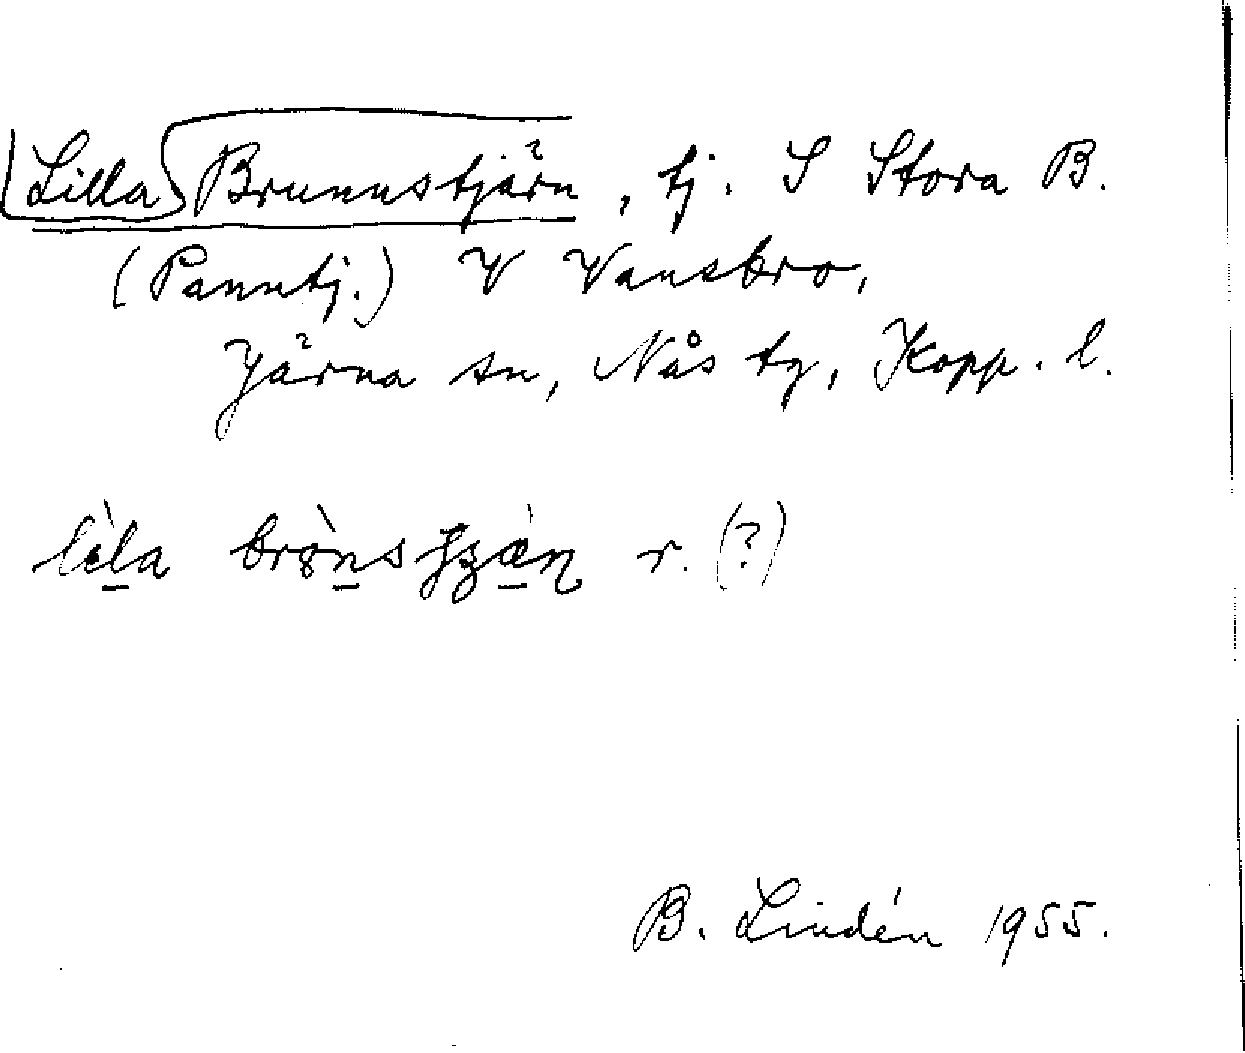 Lilla Brunnstjärn, tj. S Stora B.
(Panntj.) V Vansbro,
Järna sn, Nås tg, Kopp. l.
r. (?)
B. Lindén 1955.